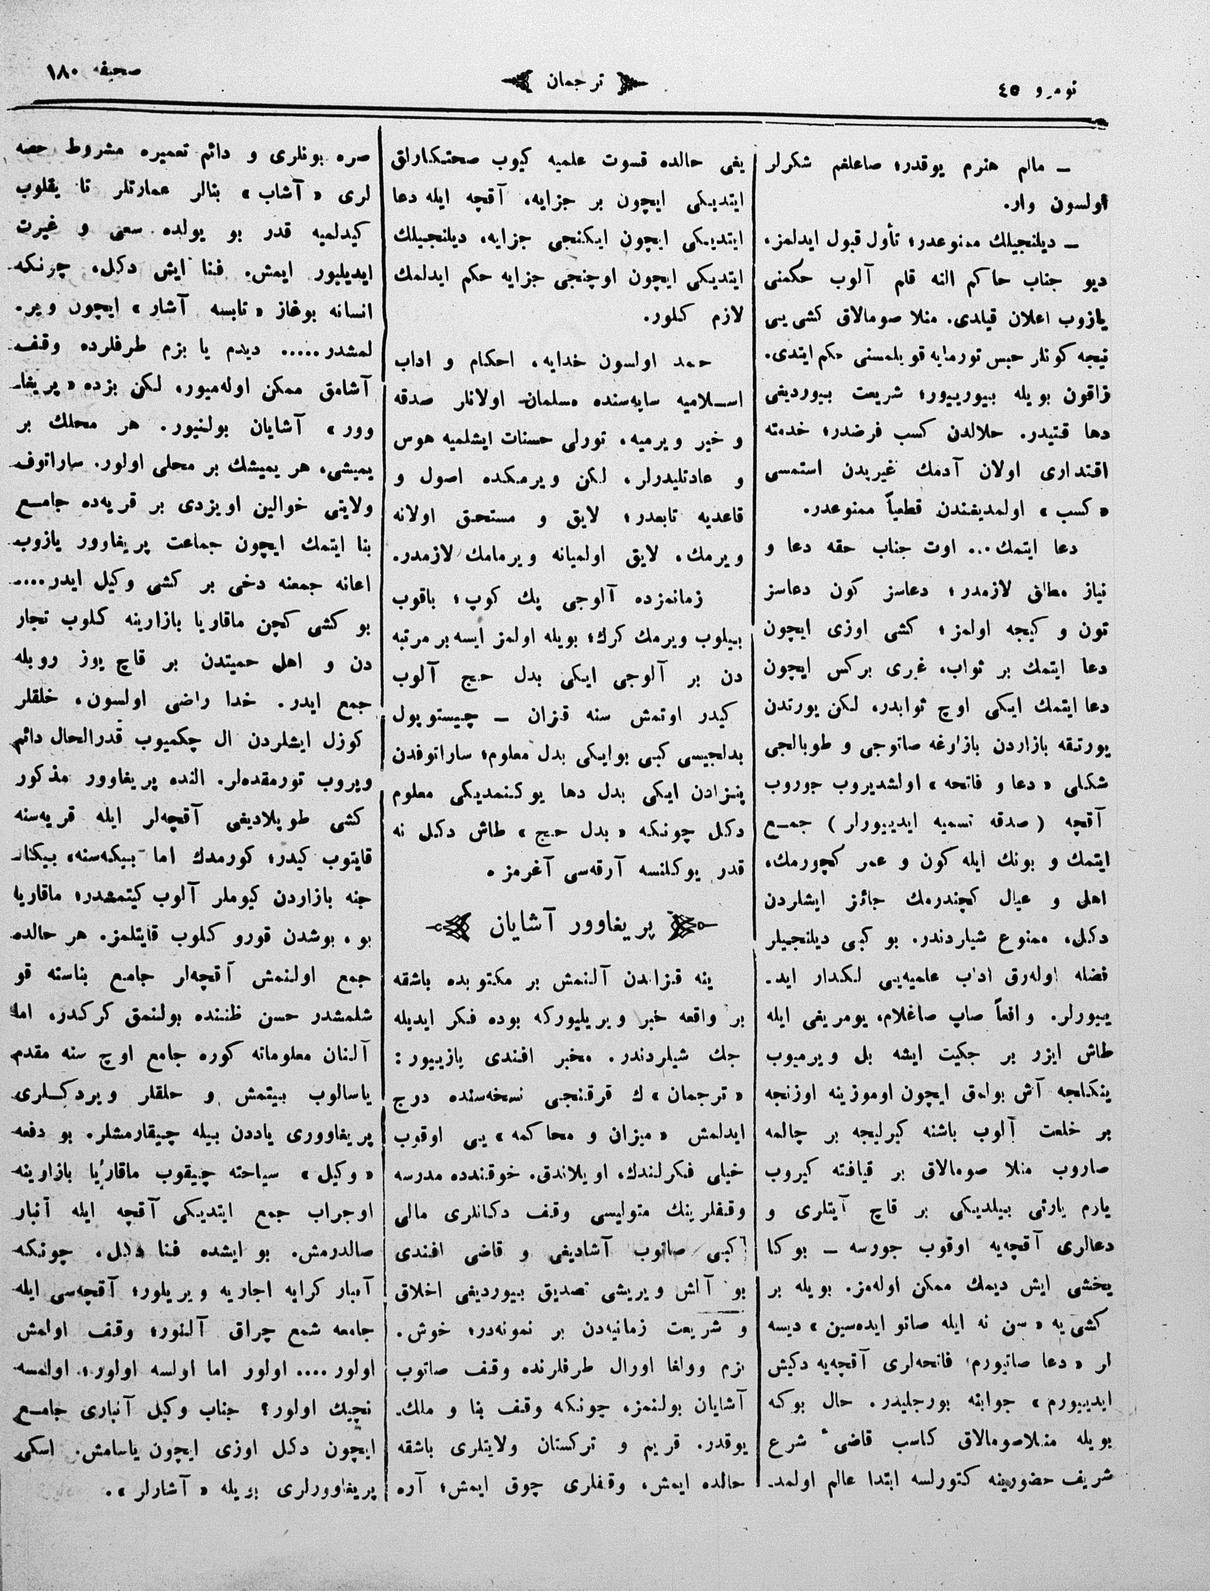 نومرو ٤٥
ترجمان
صحیفه ١٨٠
ـ مالم هنرم یوقدر؛ صاغلغم شکرلر
اولسون وار.
ـ دیلنجیلك ممنوعدر؛ تأول قبول ایدلمز،
دیو جناب حاکم النه قلم آلوب حکمنی
یازوب اعلان قیلدی. منلا صومالاق کشی یی
نیجه کونلر حبس تورمایه قویلمسنی حکم ایتدی.
زاقون بویله بیورییور؛ شریعت بیوردیغی
دها قتیدر. حلالدن کسب فرضدر؛ خدمته
اقتداری اولان آدمك غیریدن استمسی
«کسب» اولمدیغندن قطعیاً ممنوعدر.
دعا ایتمك... اوت جناب حقه دعا و
نیاز مطلق لازمدر؛ دعاسز کون دعاسز
تون و کیجه اولمز؛ کشی اوزی ایچون
دعا ایتمك بر ثواب، غیری برکس ایچون
دعا ایتمك ایکی اوچ ثوابدر، لکن یورتدن
یورتقه بازاردن بازارغه صاتوجی و طوبالجی
شکلی «دعا و فاتحه» اولشدیروب جوروب
آقچه (صدقه تسمیه ایدییورلر) جمع
ایتمك و بونك ایله کون و عمر کچورمك،
اهل و عیال کچندرمك جائز ایشلردن
دکل، ممنوع شیلردندر. بو کبی دیلنجیلر
فضله اوله‌رق اداب علمیه‌یی لکدار اید-
ییورلر. واقعاً صاپ صاغلام، یومریغی ایله
طاش ایزر بر جکیت ایشه بل ویرمیوب
ینکلجه آش بولمق ایچون اوموزینه اوزنجه
بر خلعت آلوب باشنه کیرلیجه بر چالمه
صاروب منلا صومالاق بر قیافته کیروب
یارم یارتی بیلدیکی بر قاچ آیتلری و
دعالری آقچه‌یه اوقوب جورسه ـ بوکا
یخشی ایش دیمك ممکن اوله‌مز. بویله بر
کشی‌یه «سن نه ایله صاتو ایده‌سین» دیسه
لر «دعا صاتیورم؛ فاتحه‌لری آقچه‌یه دکیش
ایدییورم» جوابنه بورجلیدر. حال بوکه
بویله منلاصومالاق کاسب قاضی شرع
شریف حضورینه کتورلسه ابتدا عالم اولمد-
یغی حالده قسوت علمیه کیوب صحتکارلق
ایتدیکی ایچون بر جزایه، آقچه ایله دعا
ایتدیکی ایچون ایکنجی جزایه، دیلنجیلك
ایتدیکی ایچون اوچنجی جزایه حکم ایدلمك
لازم کلور.
حمد اولسون خدایه، احکام و اداب
اسلامیه سایه‌سنده مسلمان اولانلر صدقه
و خیر ویرمیه، تورلی حسنات ایشلمیه هوس
و عادتلیدرلر، لکن ویرمکده اصول و
قاعدیه تابعدر؛ لایق و مستحق اولانه
ویرمك، لایق اولمیانه ویرمامك لازمدر.
زمانمزده آلوجی پك کوپ؛ باقوب
بیلوب ویرمك کرك؛ بویله اولمز ایسه بر مرتبه
دن بر آلوجی ایکی بدل حج آلوب
کیدر اوتمش سنه قزان ـ چیستوپول
بدلجیسی کبی بوایکی بدل معلوم؛ ساراتوفدن
پنزادن ایکی بدل دها یوکنمدیکی معلوم
دکل چونکه «بدل حج» طاش دکل نه
قدر یوکلنسه آرقه‌سی آغرمز.
پریغاوور آشایان
ینه قزاندن آلنمش بر مکتوبده باشقه
بر واقعه خبر ویریلیورکه بوده فکر ایدیله
جك شیلردندر. مخبر افندی یازییور:
«ترجمان»ك قرقنجی نسخه‌سنده درج
ایدلمش «میزان و محاکمه»یی اوقوب
خیلی فکرلندك، اویلاندق. خوقندده مدرسه
وقفلرینك متولیسی وقف دکانلری مالی
کبی صاتوب آشادیغی و قاضی افندی
بو آلش ویریشی تصدیق بیوردیغی اخلاق
و شریعت زمانیه‌دن بر نمونه‌در؛ خوش.
بزم وولغا اورال طرفلرنده وقف صاتوب
آشایان بولنمز، چونکه وقف بنا و ملك
یوقدر. قریم و ترکستان ولایتلری باشقه
حالده ایمش، وقفلری چوق ایمش؛ آره
صره بونلری و دائم تعمیره مشروط حصه
لری «آشاب» بنالر عمارتلر تا یقلوب
کیدلمیه قدر بو یولده سعی و غیرت
ایدیلیور ایمش. فنا ایش دکل، چونکه
انسانه بوغاز «تابسه آشار» ایچون ویر-
لمشدر..... دیدم یا بزم طرفلرده وقف
آشامق ممکن اوله‌میور، لکن بزده «پریغا-
وور» آشایان بولنیور. هر محلك بر
یمیشی، هر یمیشك بر محلی اولور. ساراتوف
ولایتی خوالین اویزدی بر قریه‌ده جامع
بنا ایتمك ایچون جماعت پریغاوور یازوب
اعانه جمعنه دخی بر کشی وکیل ایدر....
بو کشی کچن ماقاریا بازارینه کلوب تجار
دن و اهل حمیتدن بر قاچ یوز روبله
جمع ایدر. خدا راضی اولسون، خلقلر
کوزل ایشلردن ال چکمیوب قدرالحال دائم
ویروب تورمقده‌لر. النده پریغاوور مذکور
کشی طوپلادیغی آقچه‌لر ایله قریه‌سنه
قایتوب کیدر؛ کورمدك اما بیکه‌سنه، بیکتا-
جنه بازاردن کیوملر آلوب کیتمشدر؛ ماقاریا
بو، بوشدن قورو کلوب قایتلمز. هر حالده
جمع اولنمش آقچه‌لر جامع بناسنه قو
شلمشدر حسن ظننده بولنمق کرکدر، اما
آلنان معلوماته کوره جامع اوچ سنه مقدم
یاسالوب بیتمش و حلقلر ویردکلری
پریغاووری یاددن بیله چیقارمشلر. بو دفعه
«وکیل» سیاحته چیقوب ماقاریا بازارینه
اوجراب جمع ایتدیکی آقچه ایله آنبار
صالدرمش. بو ایشده فنا دکل، چونکه
آنبار کرایه اجاریه ویریلور؛ آقچه‌سی ایله
جامعه شمع چراق آلنور؛ وقف اولمش
اولور.... اولور اما اولسه اولور؛ اولمسه
نچیك اولور؟ جناب وکیل آنباری جامع
ایچون دکل اوزی ایچون یاسامش. اسکی
پریغاوورلری بویله «آشارلر».